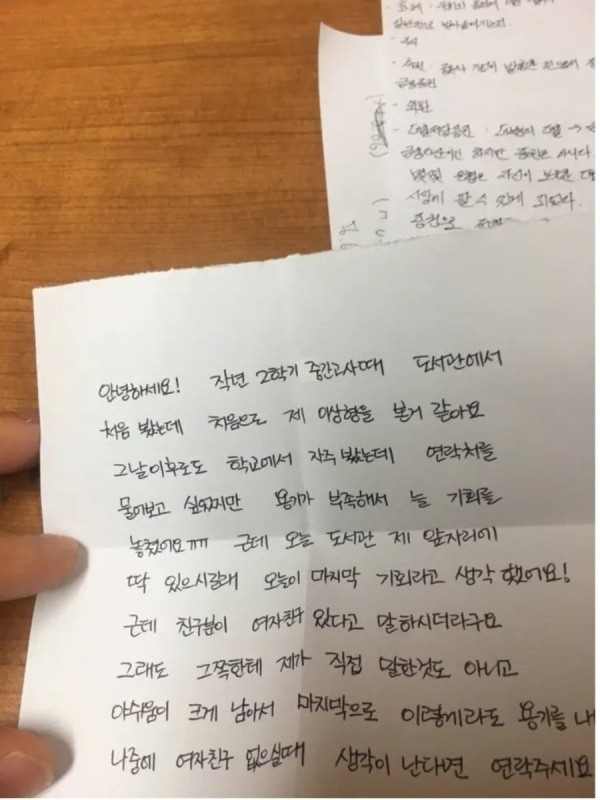 - 주식
급융증권
- 외환
사람이 팔 수 있게 되었다.
증권으로
안녕하세요! 작년 2학기 중간고사때 도서관에서
처음 봤는데 처음으로 제 이상형을 본거 같아요
그날이후로도 학교에서 자주 봤는데 연락처를
물어보고 싶었지만 용기가 부족해서 늘 기회를
놓쳤어요ㅠㅠ 근데 오늘 도서관 제 앞자리에
딱 있으시길래 오늘이 마지막 기회라고 생각했어요!
근데 친구분이 여자친구 있다고 말하시더라구요
그래도 그쪽한테 제가 직접 말한것도 아니고
아쉬움이 크게 남아서 마지막으로 이렇게라도 용기를 내
나중에 여자친구 없으실때 생각이 난다면 연락주세요